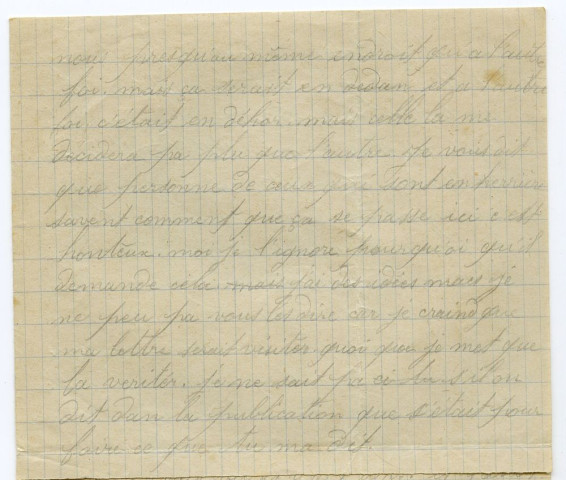 nous presqu'au même endroit qu'a l'autre
foi. mais ça serait en dedan et a l'autre
foi, c'était en déhor. mais celle la ne
décidera pa plu que l'autre. Je vous dit
que personne de ceux qui sont en arrière
savent comment que ça se passe ici c est
honteux. moi je l'ignore pourquoi qu'il
demande cela mais j'ai des idées mais je
ne peu pa vous les dire car je craind que
ma lettre serait visiter quoi que je met que
la veriter. Je ne sait pa ci tu s l'on
dit dan la publication que s'était pour
faire ce que tu ma dit.